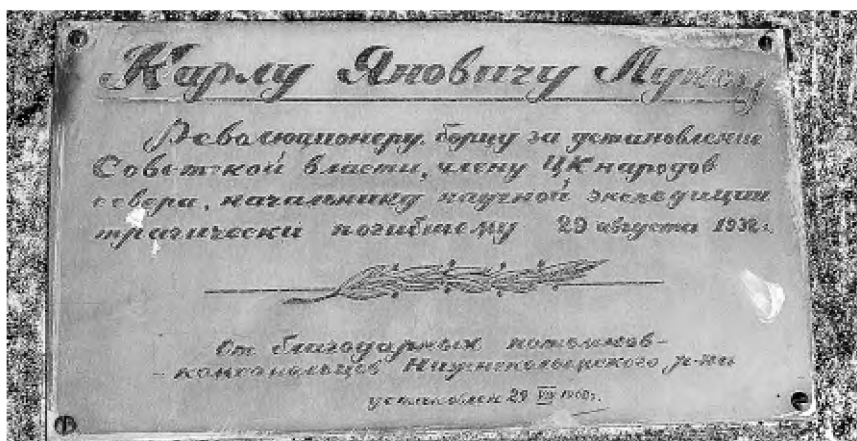 Карлу Яновичу Луксу
Революционеру, борцу за установление
Советской власти, члену ЦК народов
севера, начальнику научной экспедиции
трагически погибшему 29 августа 1932г.
От благодарных потомков-
- комсомольцев Нижнеколымского р-на
установлен 29 VIII